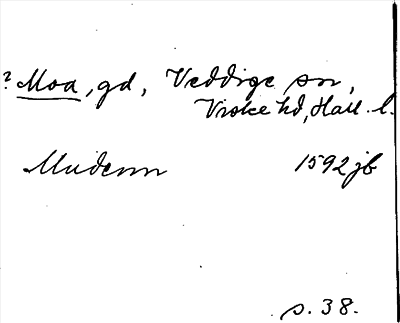 ? Moa, gd, Veddige sn,
Viske hd, Hall. l.
Mudenn 1592 jb
s. 38.